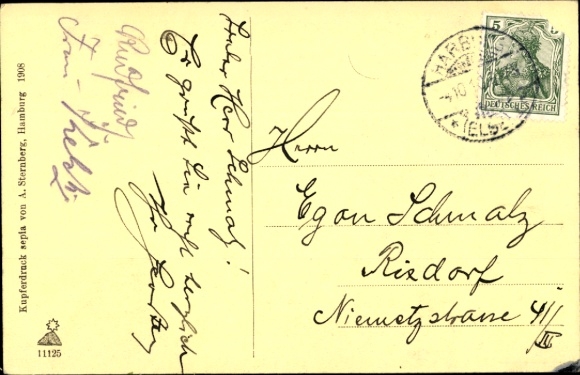 Lieber Herr Schmalz!
Es grüßt Sie recht herzlich
Ihr
Frau
Kupferdruck sepia von A. Sternberg, Hamburg 1908
11125
5
DEUTSCHES REICH
HARBURG
(ELBE)
Herrn
Egon Schmalz
Rixdorf
Niemetzstrasse 41/IV